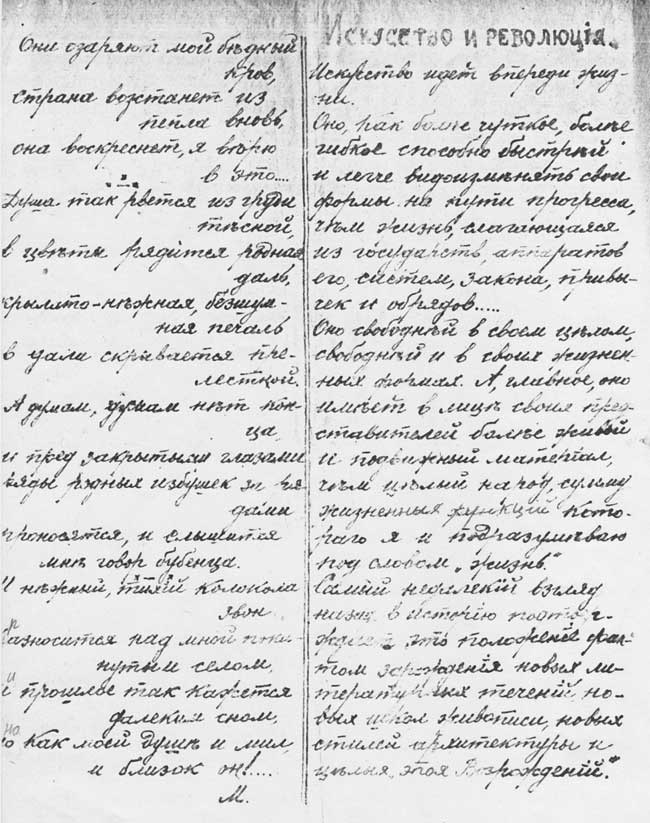 Они озаряют мой бѣдный
кров,
страна возстанет из
пепла вновь,
она воскреснет, я вѣрю
в это....
Душа так рвется из груди
тѣсной,
в цвѣты рядится родная
даль,
крылато-нѣжная, безшум-
ная печаль
в дали скрывается пре-
лестной.
А думам, думам нѣт кон-
ца,
и пред закрытыми глазами
ряды родных избушек за ря-
дами
проносятся, и слышится
мнѣ говор бубенца.
И нѣжный, тихій колокола
звон
разносится над мной поки-
нутым селом,
и прошлое так кажется
далеким сном,
но как моей душѣ и мил,
и близок он!....
М.
Искусство и революція.
Искусство идет впереди жиз-
ни.
Оно, как болѣе чуткое, болѣе
гибкое способно быстрѣй
и легче видоизмѣнять свои
формы на пути прогресса,
чѣм жизнь, слагающаяся
из государств, аппаратов
его, систем, закона, привы-
чек и обрядов.....
Оно свободнѣй в своем цѣлом,
свободнѣй и в своих жизнен-
ных формах. А, главное, оно
имѣет в лицѣ своих пред-
ставителей болѣе живой
и подвижный матеріал,
чѣм цѣлый народ, сумму
жизненных функцій кото-
раго я и подразумѣваю
под словом „жизнь".
Самый недалекій взгляд
в исторію подтвер-
ждает это положеніе фак-
том зарожденія новых ли-
тературных теченій, но-
вых школ живописи, новых
стилей архитектуры и
цѣлыя „эпоя Возрожденій."